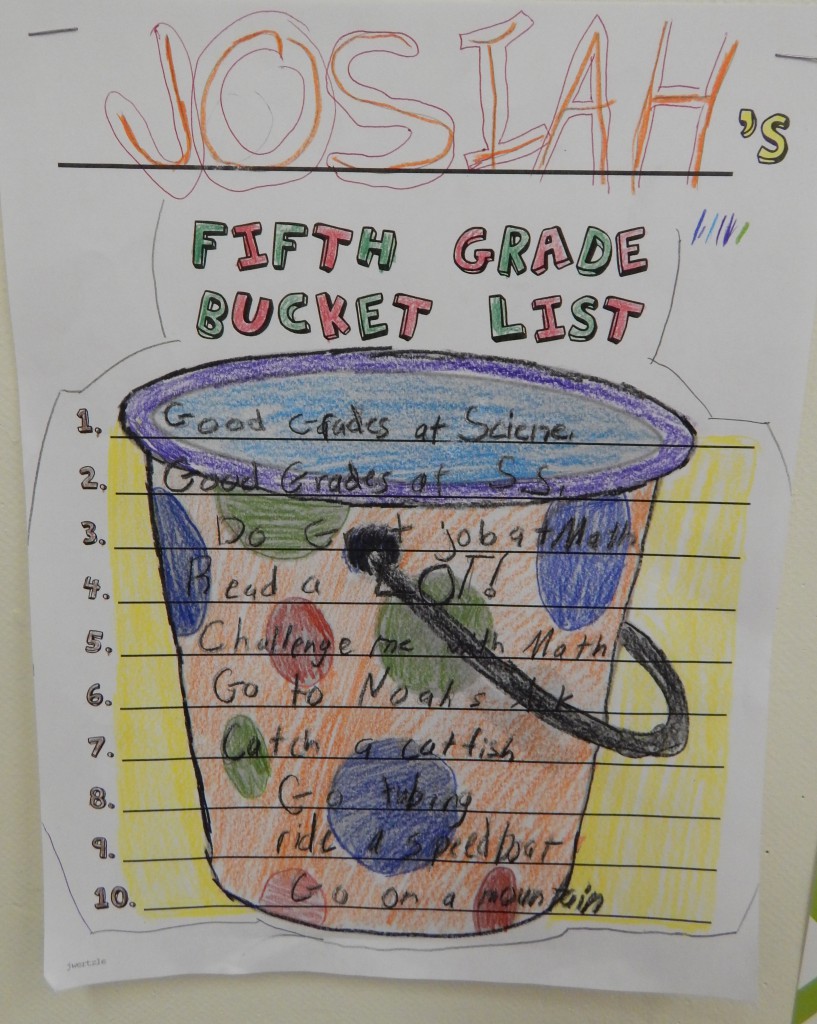 JOSIAH's
FIFTH GRADE
BUCKET LIST
1. Good Grades at Sciene.
2. Good Grades at S S.
3. Do job at Math
4. Read a LOT!
5. Challenge me with Math
6. Go to Noah s Ark
7. Catch a catfish
8. Go tubing
9. ride a speedboat
10. Go on a mountain